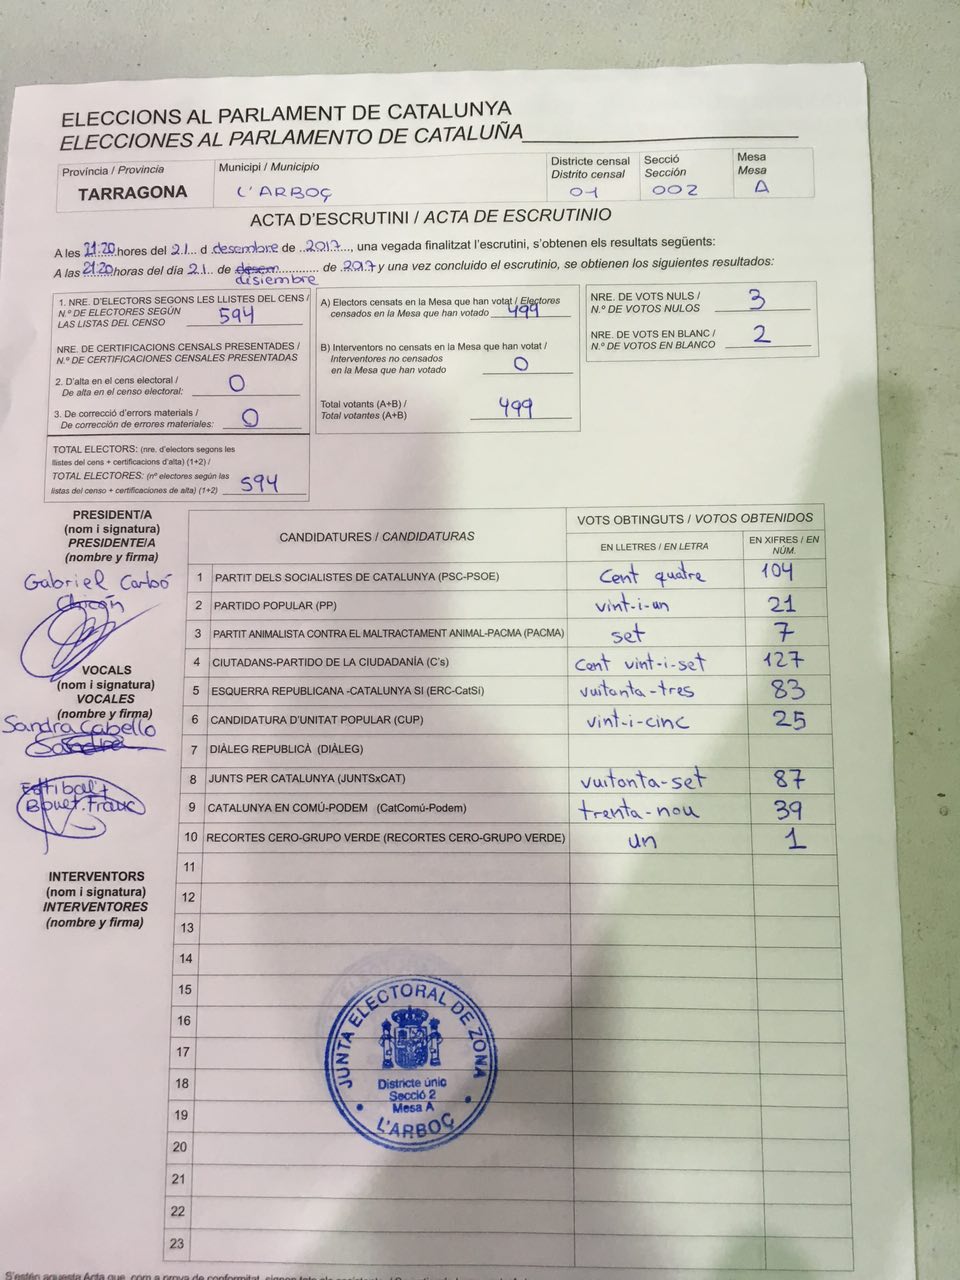 ELECCIONS AL PARLAMENT DE CATALUNYA
ELECCIONES AL PARLAMENTO DE CATALUÑA
Província / Provincia
TARRAGONA
Municipi / Municipio
L'ARBOÇ
Districte censal
Distrito censal
01
Secció
Sección
002
Mesa
Mesa
A
ACTA D'ESCRUTINI / ACTA DE ESCRUTINIO
A les 21:20 hores del 21 d desembre de 2017, una vegada finalitzat l'escrutini, s'obtenen els resultats següents:
A las 21:20 horas del día 21 de desem de 2017 y una vez concluido el escrutinio, se obtienen los siguientes resultados:
disiembre
1. NRE. D'ELECTORS SEGONS LES LLISTES DEL CENS /
N.º DE ELECTORES SEGÚN
LAS LISTAS DEL CENSO 594
NRE. DE CERTIFICACIONS CENSALS PRESENTADES /
N.º DE CERTIFICACIONES CENSALES PRESENTADAS
2. D'alta en el cens electoral /
De alta en el censo electoral: 0
3. De correcció d'errors materials /
De corrección de errores materiales: 0
TOTAL ELECTORS: (nre. d'electors segons les
llistes del cens + certificacions d'alta) (1+2) /
TOTAL ELECTORES: (nº electores según las
listas del censo + certificaciones de alta) (1+2) 594
A) Electors censats en la Mesa que han votat / Electores
censados en la Mesa que han votado 499
B) Interventors no censats en la Mesa que han votat /
Interventores no censados
en la Mesa que han votado 0
Total votants (A+B) /
Total votantes (A+B) 499
NRE. DE VOTS NULS /
N.º DE VOTOS NULOS 3
NRE. DE VOTS EN BLANC /
N.º DE VOTOS EN BLANCO 2
PRESIDENT/A
(nom i signatura)
PRESIDENTE/A
(nombre y firma)
Gabriel Carbó
Chicón
VOCALS
(nom i signatura)
VOCALES
(nombre y firma)
Sandra Cabello
Sandra
INTERVENTORS
(nom i signatura)
INTERVENTORES
(nombre y firma)
CANDIDATURES / CANDIDATURAS
VOTS OBTINGUTS / VOTOS OBTENIDOS
EN LLETRES / EN LETRA
EN XIFRES / EN NÚM.
1 PARTIT DELS SOCIALISTES DE CATALUNYA (PSC-PSOE) Cent quatre 104
2 PARTIDO POPULAR (PP) vint-i-un 21
3 PARTIT ANIMALISTA CONTRA EL MALTRACTAMENT ANIMAL-PACMA (PACMA) set 7
4 CIUTADANS-PARTIDO DE LA CIUDADANÍA (C's) Cent vint-i-set 127
5 ESQUERRA REPUBLICANA -CATALUNYA SÍ (ERC-CatSí) vuitanta-tres 83
6 CANDIDATURA D'UNITAT POPULAR (CUP) vint-i-cinc 25
7 DIÀLEG REPUBLICÀ (DIÀLEG)
8 JUNTS PER CATALUNYA (JUNTSxCAT) vuitanta-set 87
9 CATALUNYA EN COMÚ-PODEM (CatComú-Podem) trenta-nou 39
10 RECORTES CERO-GRUPO VERDE (RECORTES CERO-GRUPO VERDE) un 1
11
12
13
14
15
16
17
18
19
20
21
22
23
JUNTA ELECTORAL DE ZONA
Districte únic
Secció 2
Mesa A
L'ARBOÇ